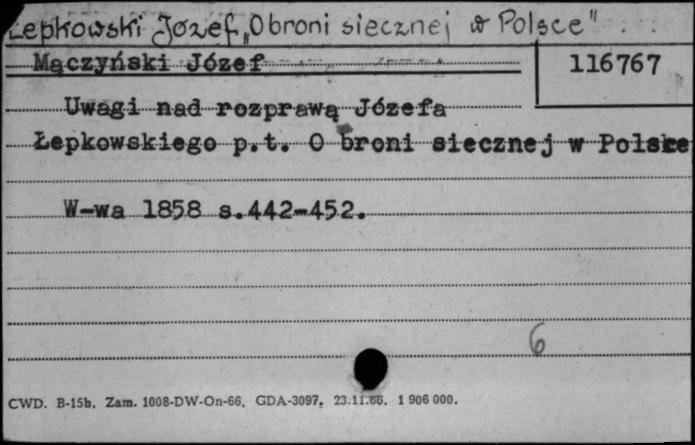 Łepkowski Józef „O broni siecznej w Polsce"
Mączyński Józef
116767
Uwagi nad rozprawą Józefa
Łepkowskiego p.t. O broni siecznej w Polsce
W-wa 1858 s.442-452.
6
CWD. B-15b. Zam. 1008-DW-On-66. GDA-3097. 23.11.66. 1 906 000.